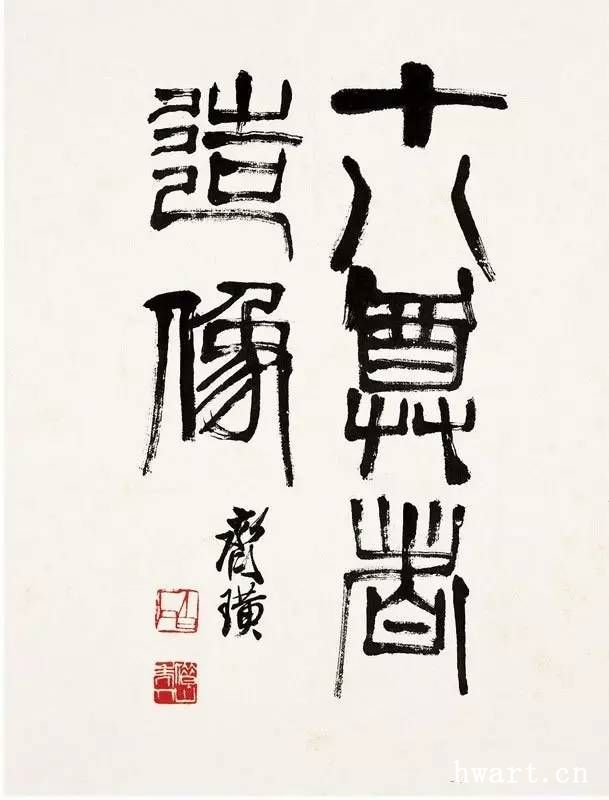 十八尊者
造像
齊璜
hwart.cn